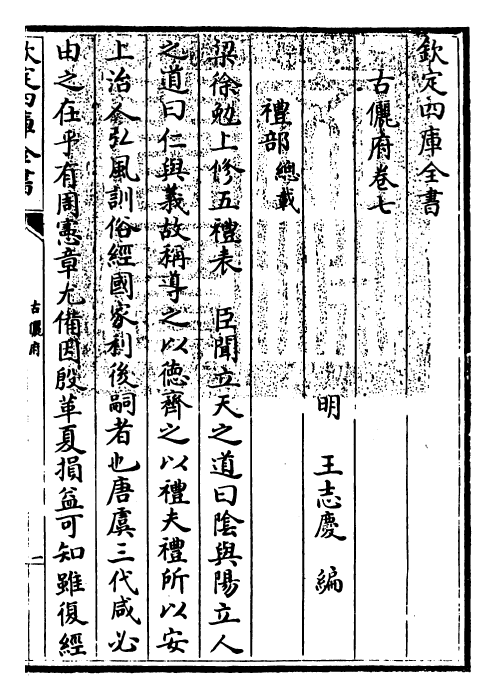 欽定四庫全書
古儷府卷七
明　王志慶　編
禮部總載
梁徐勉上修五禮表　臣聞立天之道曰陰與陽立人
之道曰仁與義故稱導之以德齊之以禮夫禮所以安
上治人弘風訓俗經國家利後嗣者也唐虞三代咸必
由之在乎有周憲章尤備因殷革夏損益可知雖復經
欽定四庫全書
古儷府
一